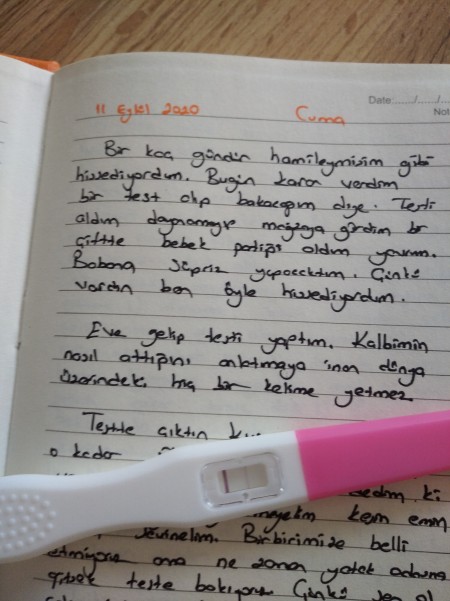 Date:....../....../...
Not
11 Eylül 2020 Cuma
Bir kaç gündür hamileymişim gibi
hissediyordum. Bugün karar verdim
bir test alıp bakacağım diye. Testi
aldım dayanamayıp mağazaya girdim bir
çiftte bebek patiği aldım yavrum.
Babana süpriz yapacaktım. Çünkü
vardın ben öyle hissediyordum.
Eve gelip testi yaptım. Kalbimin
nasıl attığını anlatmaya inan dünya
üzerindeki hiç bir kelime yetmez
Testte çıktın
o kadar
ki
kem emin
sevinelim. Birbirimize belli
etmiyoruz ama ne zaman yatak odasına
gitsek teste bakıyoruz. Çünkü sen